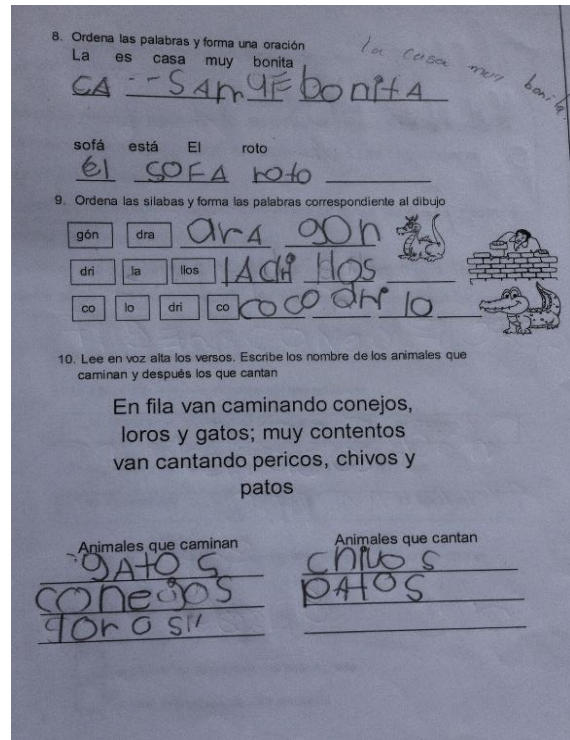 8. Ordena las palabras y forma una oración
La es casa muy bonita
la casa muy bonita.
CA -- SAmUE bonitA
sofá está El roto
El SOFA roto
9. Ordena las silabas y forma las palabras correspondiente al dibujo
gón dra arA gon
dri la llos lAdri llos
co lo dri co coco dri lo
10. Lee en voz alta los versos. Escribe los nombre de los animales que
caminan y después los que cantan
En fila van caminando conejos,
loros y gatos; muy contentos
van cantando pericos, chivos y
patos
Animales que caminan Animales que cantan
gAtOS chivos
conejos PAtOS
loros